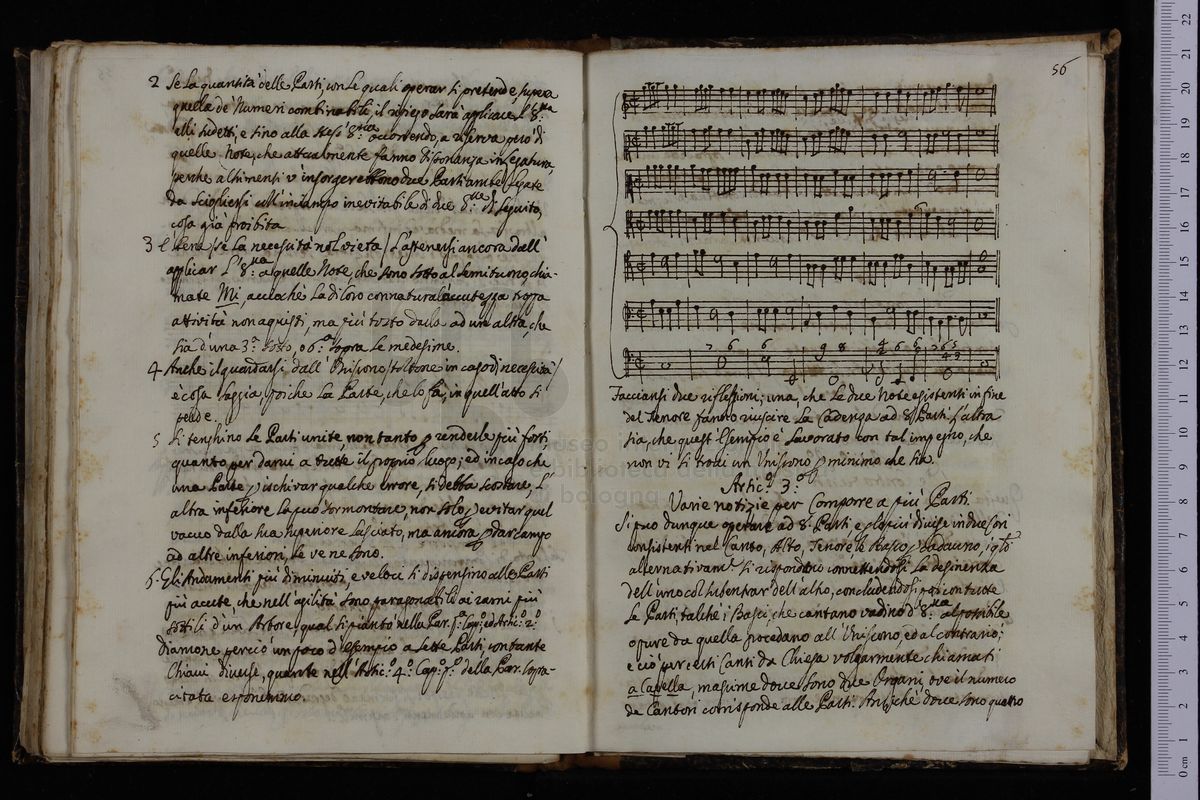 2 Se la quantità delle Parti, con le quali operar si pretende, supera
quella de' Numeri combinabili, il ripiego sarà applicare l'8.va
alli sudetti, e sino alla stess' 8.va occorrendo, a riserva però di
quelle Note, che attualmente fanno Dissonanza in legatura,
perche altrimenti v'insorgerebbono due Parti ambe legate
da sciogliersi coll'inciampo inevitabile di due 8.ve di seguito,
cosa già proibita
3 È bene, se la necessità nol vieta, l'astenersi ancora dall'
applicar l'8.va a quelle Note, che sono sotto al Semituono, chia-
mate Mi, acciochè la di loro connatural'acutezza troppa
attività non aquisti, ma più tosto darla ad un'altra, che
sia d'una 3.a sotto, o 6.a sopra le medesime.
4 Anche il guardarsi dall'Unissono soltone in caso di necessità
è cosa saggia, poiche la Parte, che lo fà, in quell'atto si
perde.
5 Si tenghino le Parti unite non tanto p renderle più forti
quanto per darui a tutte il proprio luogo; ed in caso che
una Parte p ischivar qualche errore, si debba scostare, l'
altra inferiore la può sormontare, non solo p evitar quel
vacuo dalla sua superiore lasciato, ma ancora p dar campo
ad altre inferiori, se ve ne sono.
6 Gli Andamenti più diminuiti, e veloci si dispensino alle Parti
più acute, che nell'agilità sono paragonabili ai rami più
sottili d'un Arbore, qual si piantò nella Par. p.a Cap. ed Artic.o 2.o
Diamone perciò un poco d'Esempio a sette Parti, con tante
Chiavi diverse, quante nell'Artic.o 4.o Cap.o p.o della Par. sopra-
citata esponemmo.
56
7 6 6 9 8 4 6 6 7 6 5
2 5 4 3
Facciansi due riflessioni; una, che le due Note esistenti in fine
del Tenore fanno riuscire la Cadenza ad 8 Parti, l'altra
sia, che quest'Esempio è lavorato con tal impegno, che
non vi si trovi un Unissono p minimo che sia.
Artic.o 3.o
Varie notizie per Comporre a più Parti
Si può dunque operare ad 8 Parti e più, divise in due Cori
consistenti nel Canto, Alto, Tenore, e Basso p cadauno, i q.li
alternativam.e si rispondono connettendosi la desinenza
dell'uno coll'intentrar dell'altro, concludendosi poi con tutte
le Parti, talche i Bassi, che cantano vadino d'8.va al possibile
oppure da quella procedano all'Unissono, ed al contrario;
e ciò per certi Canti da Chiesa volgarmente chiamati
a Capella, massime dove sono due Organi, ove il numero
de Cantori corrisponde alle Parti. Anzichè dove sono quattro